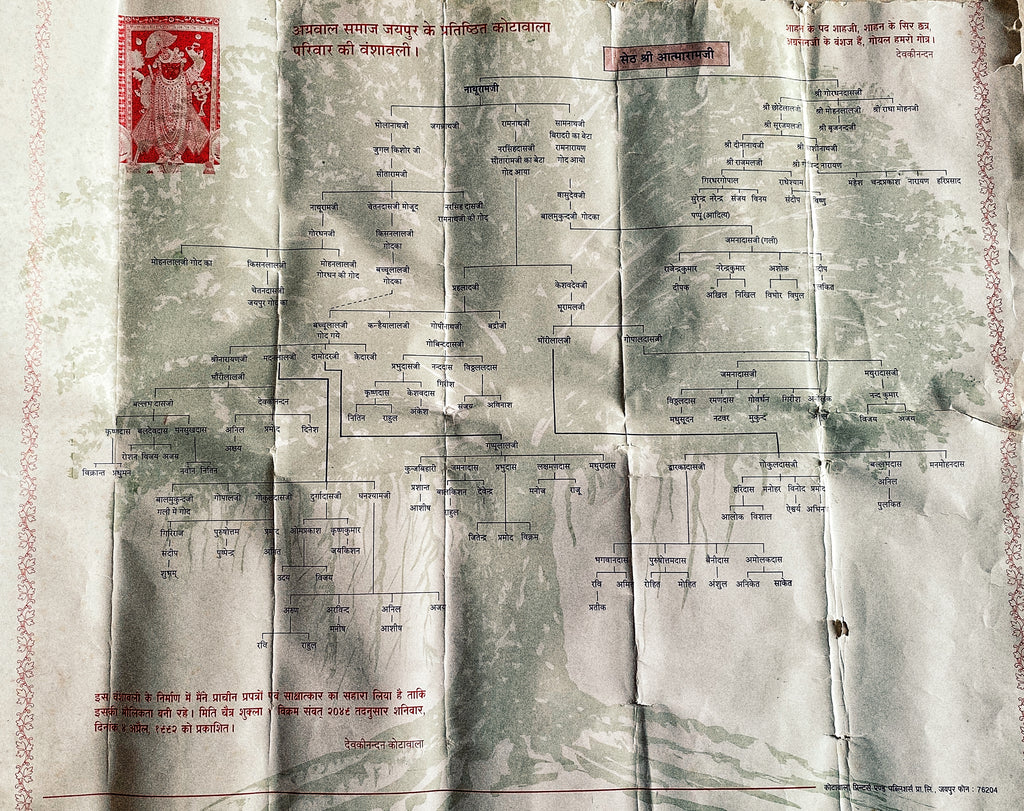 अग्रवाल समाज जयपुर के प्रतिष्ठित कोटावाला
परिवार की वंशावली।
शाहन के पद शाहजी, शाहन के सिर छत्र,
अग्रसेनजी के वंशज हैं, गोयल हमरो गोत्र।
देवकीनंदन
सेठ श्री आत्मारामजी
नाथूरामजी
श्री गोरधनदासजी
श्री छोटेलालजी श्री मोहनलालजी श्री राधा मोहनजी
भोलानाथजी जगन्नाथजी रामनाथजी सामनाथजी
बिरादरी का बेटा
श्री सूरजमलजी श्री बृजनन्दजी
जुगल किशोर जी नरसिंहदासजी रामनारायण
सीतारामजी का बेटा गोद आयो
गोद आया
श्री दीनानाथजी
सीतारामजी
श्री राजमलजी
गिरधरगोपाल राधेश्याम महेश चन्द्रप्रकाश नारायण हरिप्रसाद
सुरेन्द्र नरेन्द्र संजय विनय संदीप विष्णु
पप्पू (आदित्य)
वासुदेवजी
बालमुकुन्दजी गोदका
नाथूरामजी चेतनदासजी मोजूद नरसिंह दासजी
रामनाथजी की गोद
गोरधनजी किसनलालजी
गोदका
जमनादासजी (गली)
मोहनलालजी गोद का किसनलालजी मोहनलालजी
गोरधन की गोद
बच्चूलालजी
गोदका
चेतनदासजी
जयपुर गोद का
राजेन्द्रकुमार नरेन्द्रकुमार अशोक
दीपक अखिल निखिल विभोर विपुल
प्रहलादजी केशवदेवजी
भूरामलजी
बच्चूलालजी कन्हैयालालजी गोपीनाथजी बद्रीजी
गोद गये
गोबिन्ददासजी
भोरीलालजी गोपालदासजी
श्रीनारायणजी मदनलालजी दामोदरजी केदारजी
प्रभुदासजी नन्ददास विठ्ठलदास
भौंरीलालजी गिरीश
जमनादासजी मथुरादासजी
कृष्णदास केशवदास संजय अविनाश
नितिन राहुल अंकेश
बल्लभदासजी देवकीनन्दन
विठ्ठलदास रमणदास गोवर्धन गिरीश नन्द कुमार
मधुसूदन नटवर मुकुन्द विजय अजय
कृष्णदास बलदेवदास मनसुखदास अनिल प्रमोद दिनेश
अक्षय
विक्रान्त प्रधुमन रोशन विजय अजय नवीन नितिन
गप्पूलालजी
कुन्जबिहारी जमनादास प्रभुदास लक्ष्मणदास मथुरादास
द्वारकादासजी गोकुलदासजी बल्लभदास मनमोहनदास
प्रशान्त बालकिशन देवेन्द्र मनोज राजू
आशीष राहुल
अनिल
पुलकित
हरिदास मनोहर विनोद प्रमोद
आलोक विशाल ऐश्वर्य
जितेन्द्र प्रमोद विक्रम
बालमुकुन्दजी गोपालजी गोकुलदासजी दुर्गादासजी घनश्यामजी
गली में गोद
गिरिराज पुरुषोत्तम प्रमोद ओमप्रकाश कृष्णकुमार
संदीप पुष्पेन्द्र जयकिशन
शुभम्
उदय विजय
भगवानदास पुरुषोत्तमदास बैनीदास अमोलकदास
रवि अमित रोहित मोहित अंशुल अनिकेत साकेत
प्रतीक
अरुण अरविन्द अनिल अजय
मनीष आशीष
रवि राहुल
इस वंशावली के निर्माण में मैंने प्राचीन प्रपत्रों एवं साक्षात्कार का सहारा लिया है ताकि
इसकी मौलिकता बनी रहे। मिति चैत्र शुक्ला १ विक्रम संवत् २०४९ तदनुसार शनिवार,
दिनांक ४ अप्रेल, १९९२ को प्रकाशित।
देवकीनन्दन कोटावाला
कोटावाला प्रिन्टर्स एण्ड पब्लिशर्स प्रा. लि., जयपुर फोन : 76204